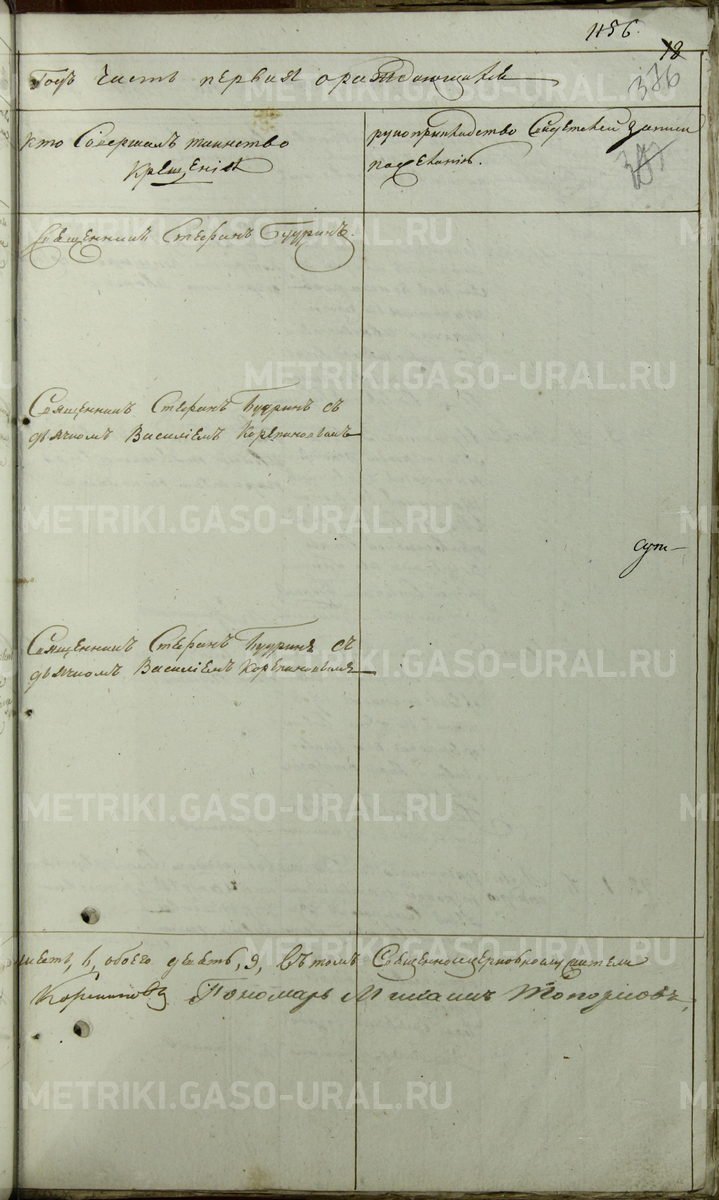 1156.
18
376
377
Годъ часть первая ораждающихся
кто Совершалъ таинство
Крещенія
рукоприкладство Свидѣтелей записи
по желанію.
Священникъ Стефанъ Будринъ.
Священникъ Стефанъ Будринъ съ
дьячкомъ Василіемъ Корепановымъ
Священникъ Стефанъ Будринъ съ
дьячкомъ Василіемъ Корепановымъ
шесть, 6, обоего девять, 9, въ томъ Священноцерковнослужители
Корепановъ Пономарь Михаилъ Топорковъ,
METRIKI.GASO-URAL.RU